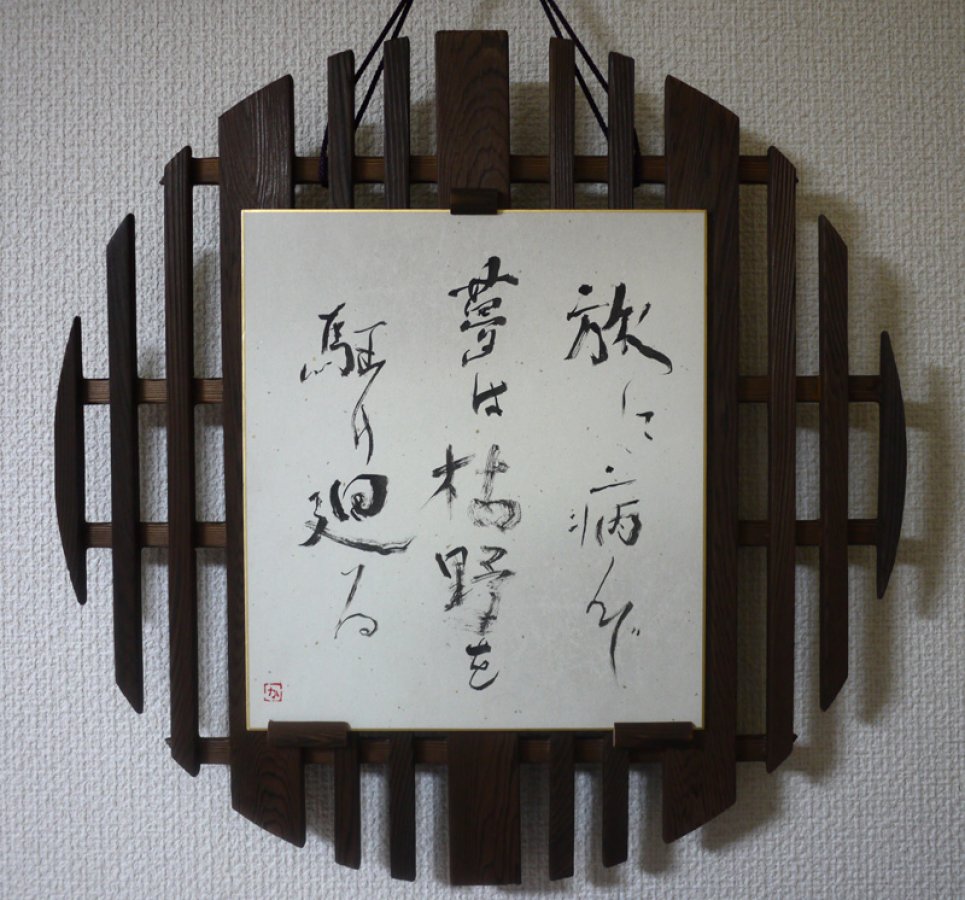 旅に病んで
夢は枯野を
駈け廻る
か